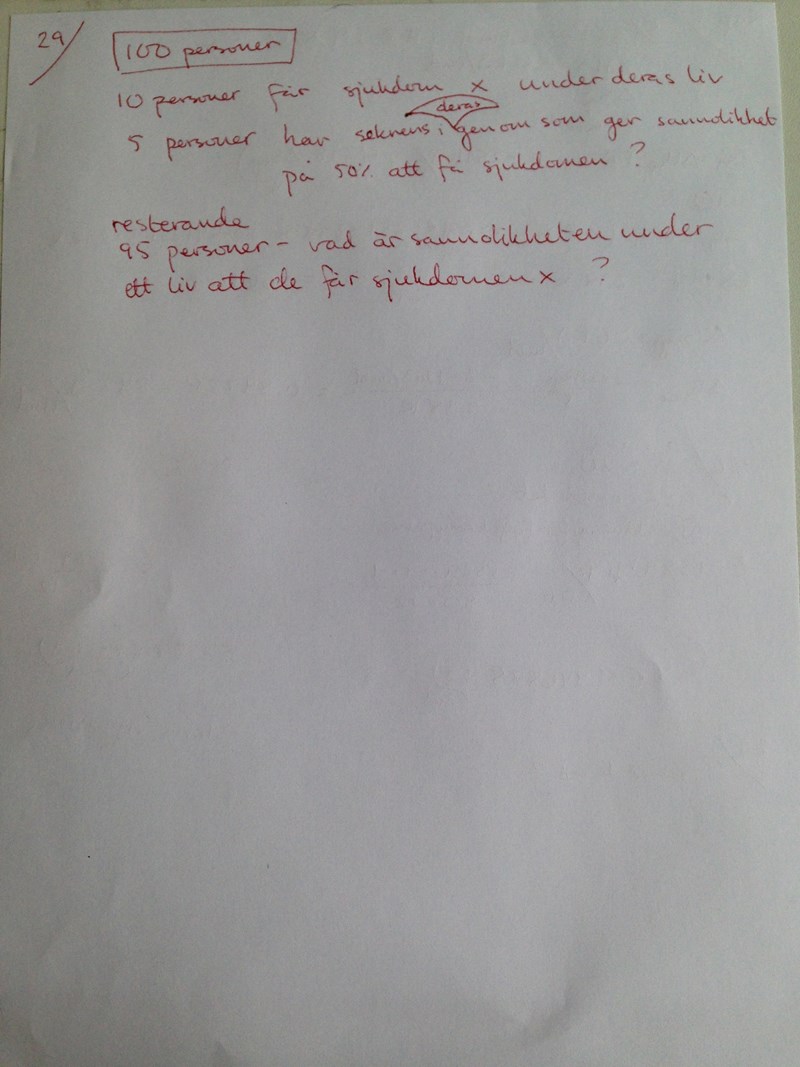 29/
100 personer
10 personer får sjukdom x under deras liv
deras
5 personer har sekvens i genom som ger sannolikhet
på 50% att få sjukdomen ?
resterande
95 personer - vad är sannolikheten under
ett liv att de får sjukdomen x ?